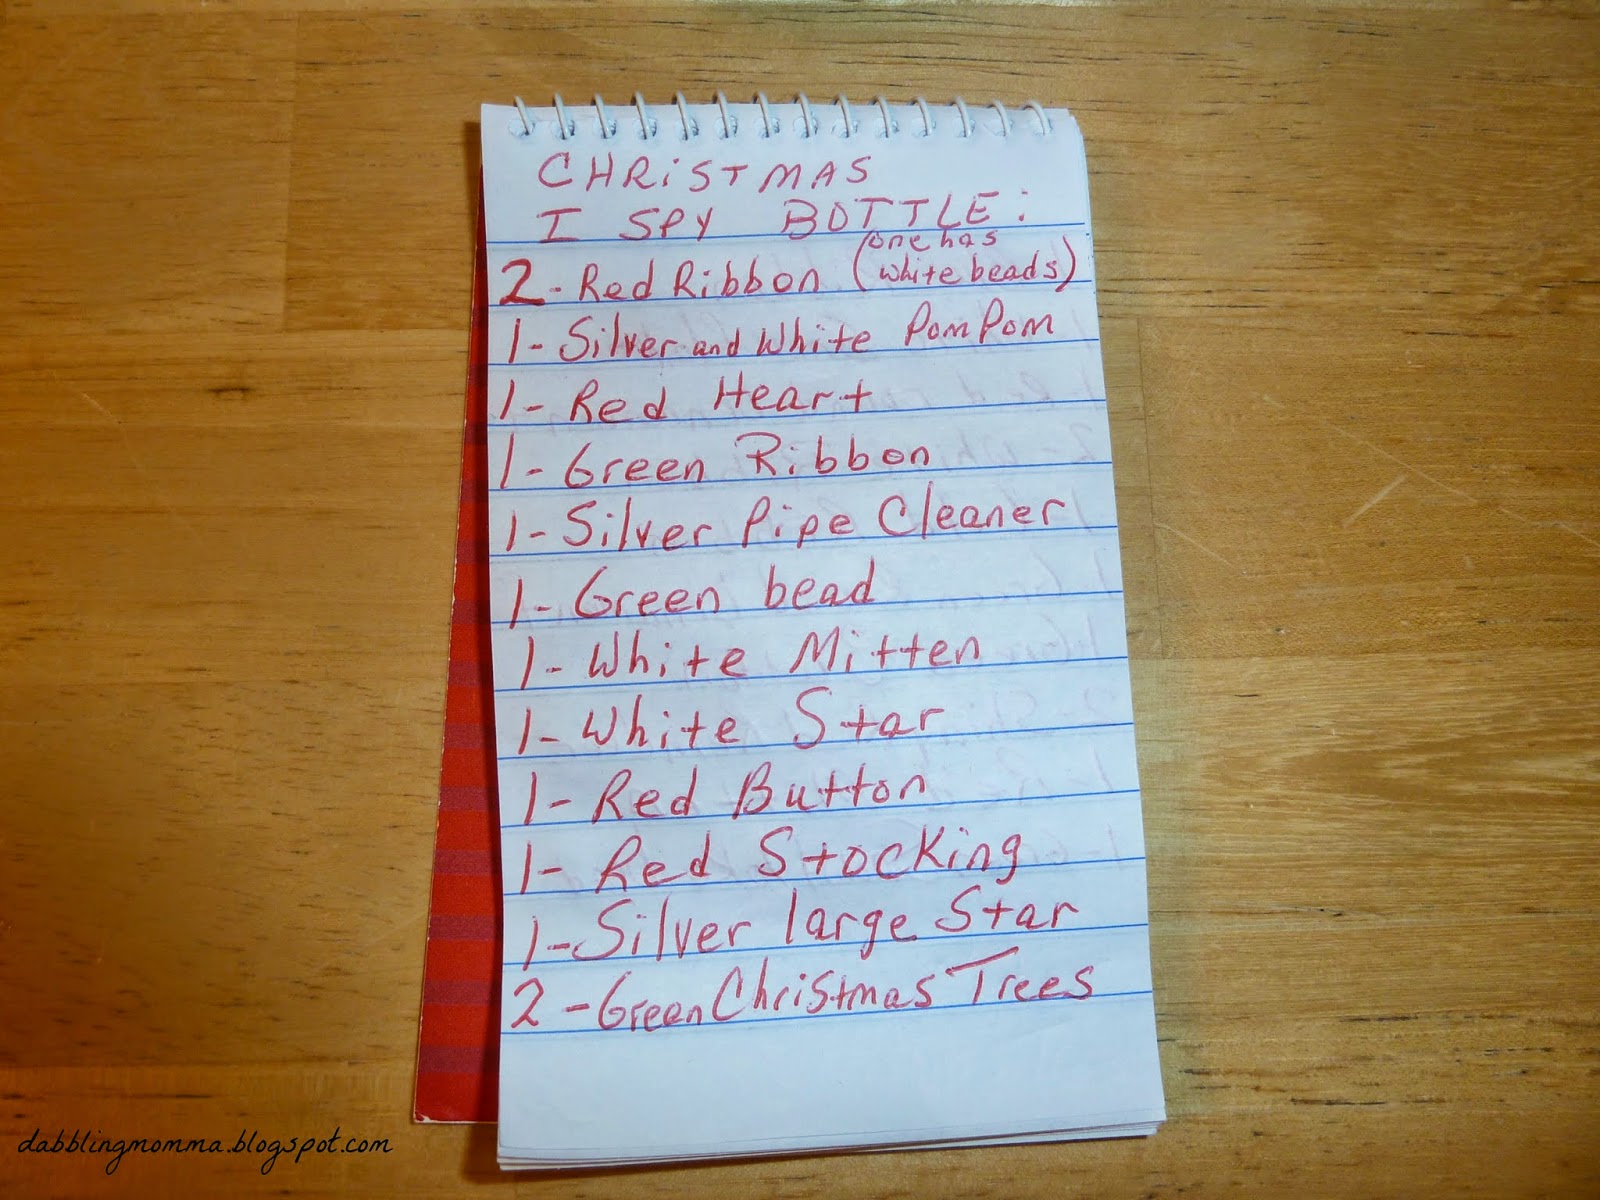 CHRiSTMAS
I SPY BOTTLE:
2 - Red Ribbon (one has white beads)
1 - Silver and White PomPom
1 - Red Heart
1 - Green Ribbon
1 - Silver Pipe Cleaner
1 - Green bead
1 - White Mitten
1 - White Star
1 - Red Button
1 - Red Stocking
1 - Silver large Star
2 - Green Christmas Trees
dabblingmomma.blogspot.com